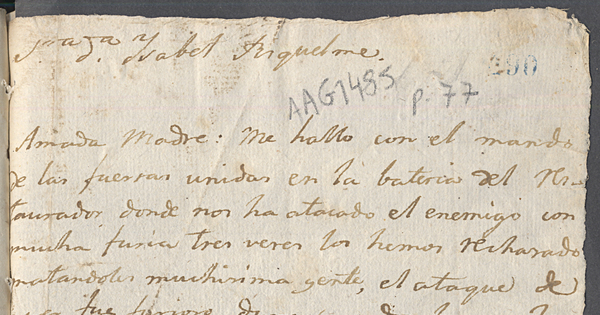 S.ra d.a Ysabel Riquelme.
290
AAG1485 p. 77
Amada Madre: Me hallo con el mando
de las fuersas unidas en la bateria del Res-
taurador donde nos ha atacado el enemigo con
mucha furia tres veces los hemos rechazado
matandoles muchisima gente, el ataque de
fue furioso